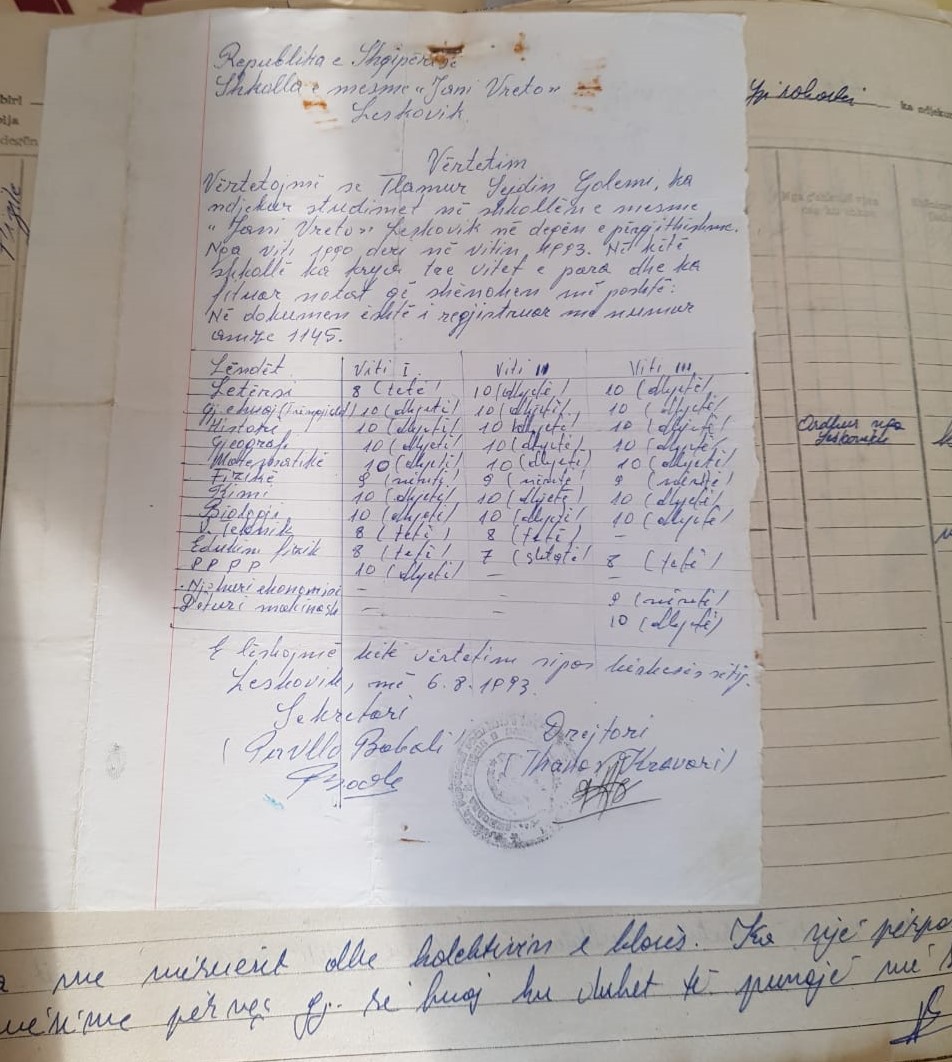 Republika e Shqipërisë
Shkolla e mesme "Jani Vreto"
Leskovik.
Vërtetim
Vërtetojmë se Flamur Sejdin Golemi, ka
ndjekur studimet në shkollën e mesme
"Jani Vreto" Leskovik në degën e përgjithshme.
Nga viti 1990 deri në vitin 1993. Në këtë
shkollë ka kryer tre vitet e para dhe ka
fituar notat që shënohen më poshtë:
Në dokumen është i regjistruar me numur
amze 1145.
Lëndët Viti I Viti II Viti III
Letërsi 8 (tetë) 10 (dhjetë) 10 (dhjetë)
Gj. e huaj 10 (dhjetë) 10 (dhjetë) 10 (dhjetë)
Histori 10 (dhjetë) 10 (dhjetë) 10 (dhjetë)
Gjeografi 10 (dhjetë) 10 (dhjetë) 10 (dhjetë)
Matematikë 10 (dhjetë) 10 (dhjetë) 10 (dhjetë)
Fizikë 9 (nëntë) 9 (nëntë) 9 (nëntë)
Kimi 10 (dhjetë) 10 (dhjetë) 10 (dhjetë)
Biologji 10 (dhjetë) 10 (dhjetë) 10 (dhjetë)
V. teknik 8 (tetë) 8 (tetë) –
Edukim fizik 8 (tetë) 7 (shtatë) 8 (tetë)
P P P P 10 (dhjetë) – –
Njohuri ekonomixe – – 9 (nëntë)
Deturi makinash – – 10 (dhjetë)
E lëshojmë këtë vërtetim sipas kërkesës së tij.
Leskovik, më 6.8.1993.
Sekretari Drejtori
(Pavllo Babali (Thano Kravari)
ka ndjekur
Ardhur nga
Leskoviku
me mësuesit dhe kolektivin e klasës. Ka një
përveç gj. së huaj ku duhet të punojë më